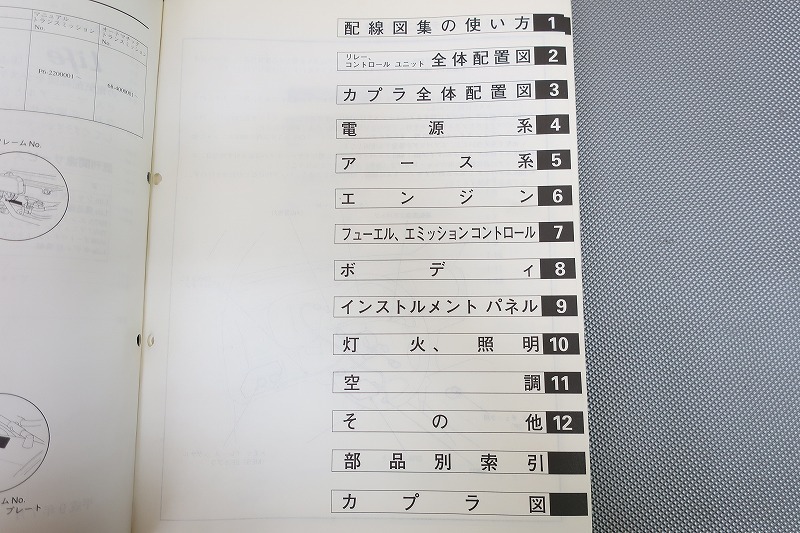 マニュアル
トランスミッション
No.
オートマチック
トランスミッション
No.
P6-2200001～
S8-4000001～
レームNo.
ムNo.
プレート
配線図集の使い方 1
リレー、
コントロール ユニット 全体配置図 2
カプラ全体配置図 3
電源系 4
アース系 5
エンジン 6
フューエル、エミッションコントロール 7
ボディ 8
インストルメント パネル 9
灯火、照明 10
空調 11
その他 12
部品別索引
カプラ図